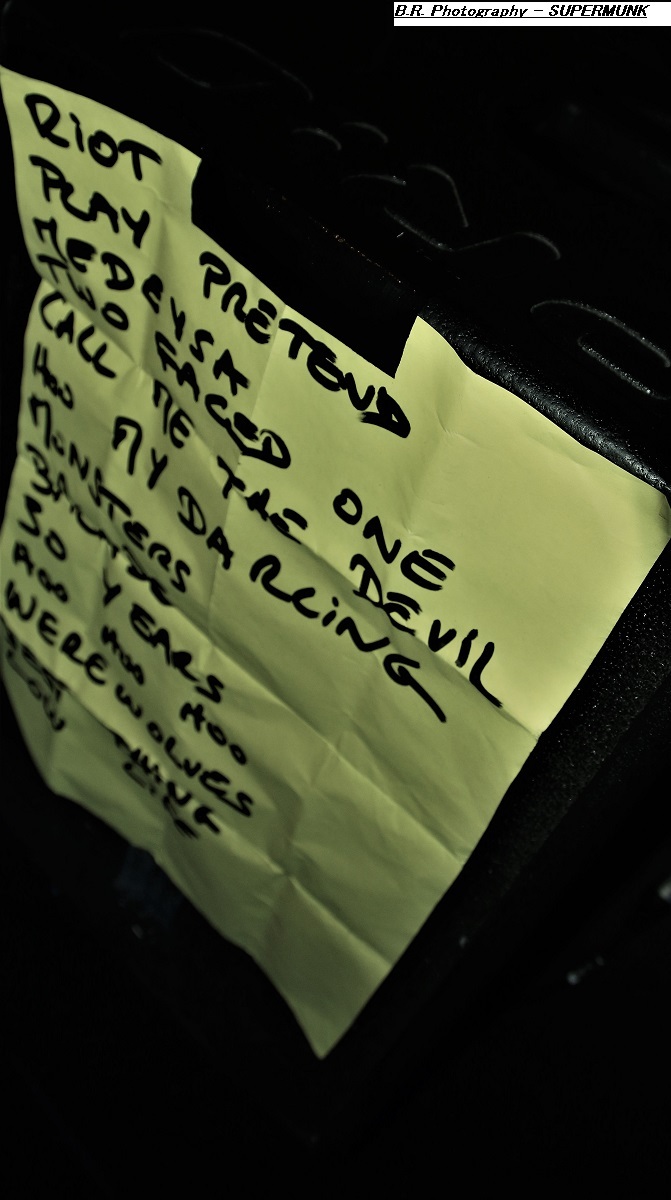 B.R. Photography - SUPERMUNK
RiOT
PLAY PRETEND
MEDEUSA
TWO FACED ONE
CALL ME THE DEVIL
HOO MY DARLiNG
MONSTERS
30 YEARS
HOO HOO HOO
WEREWOLVES
THING
LOW LIFE